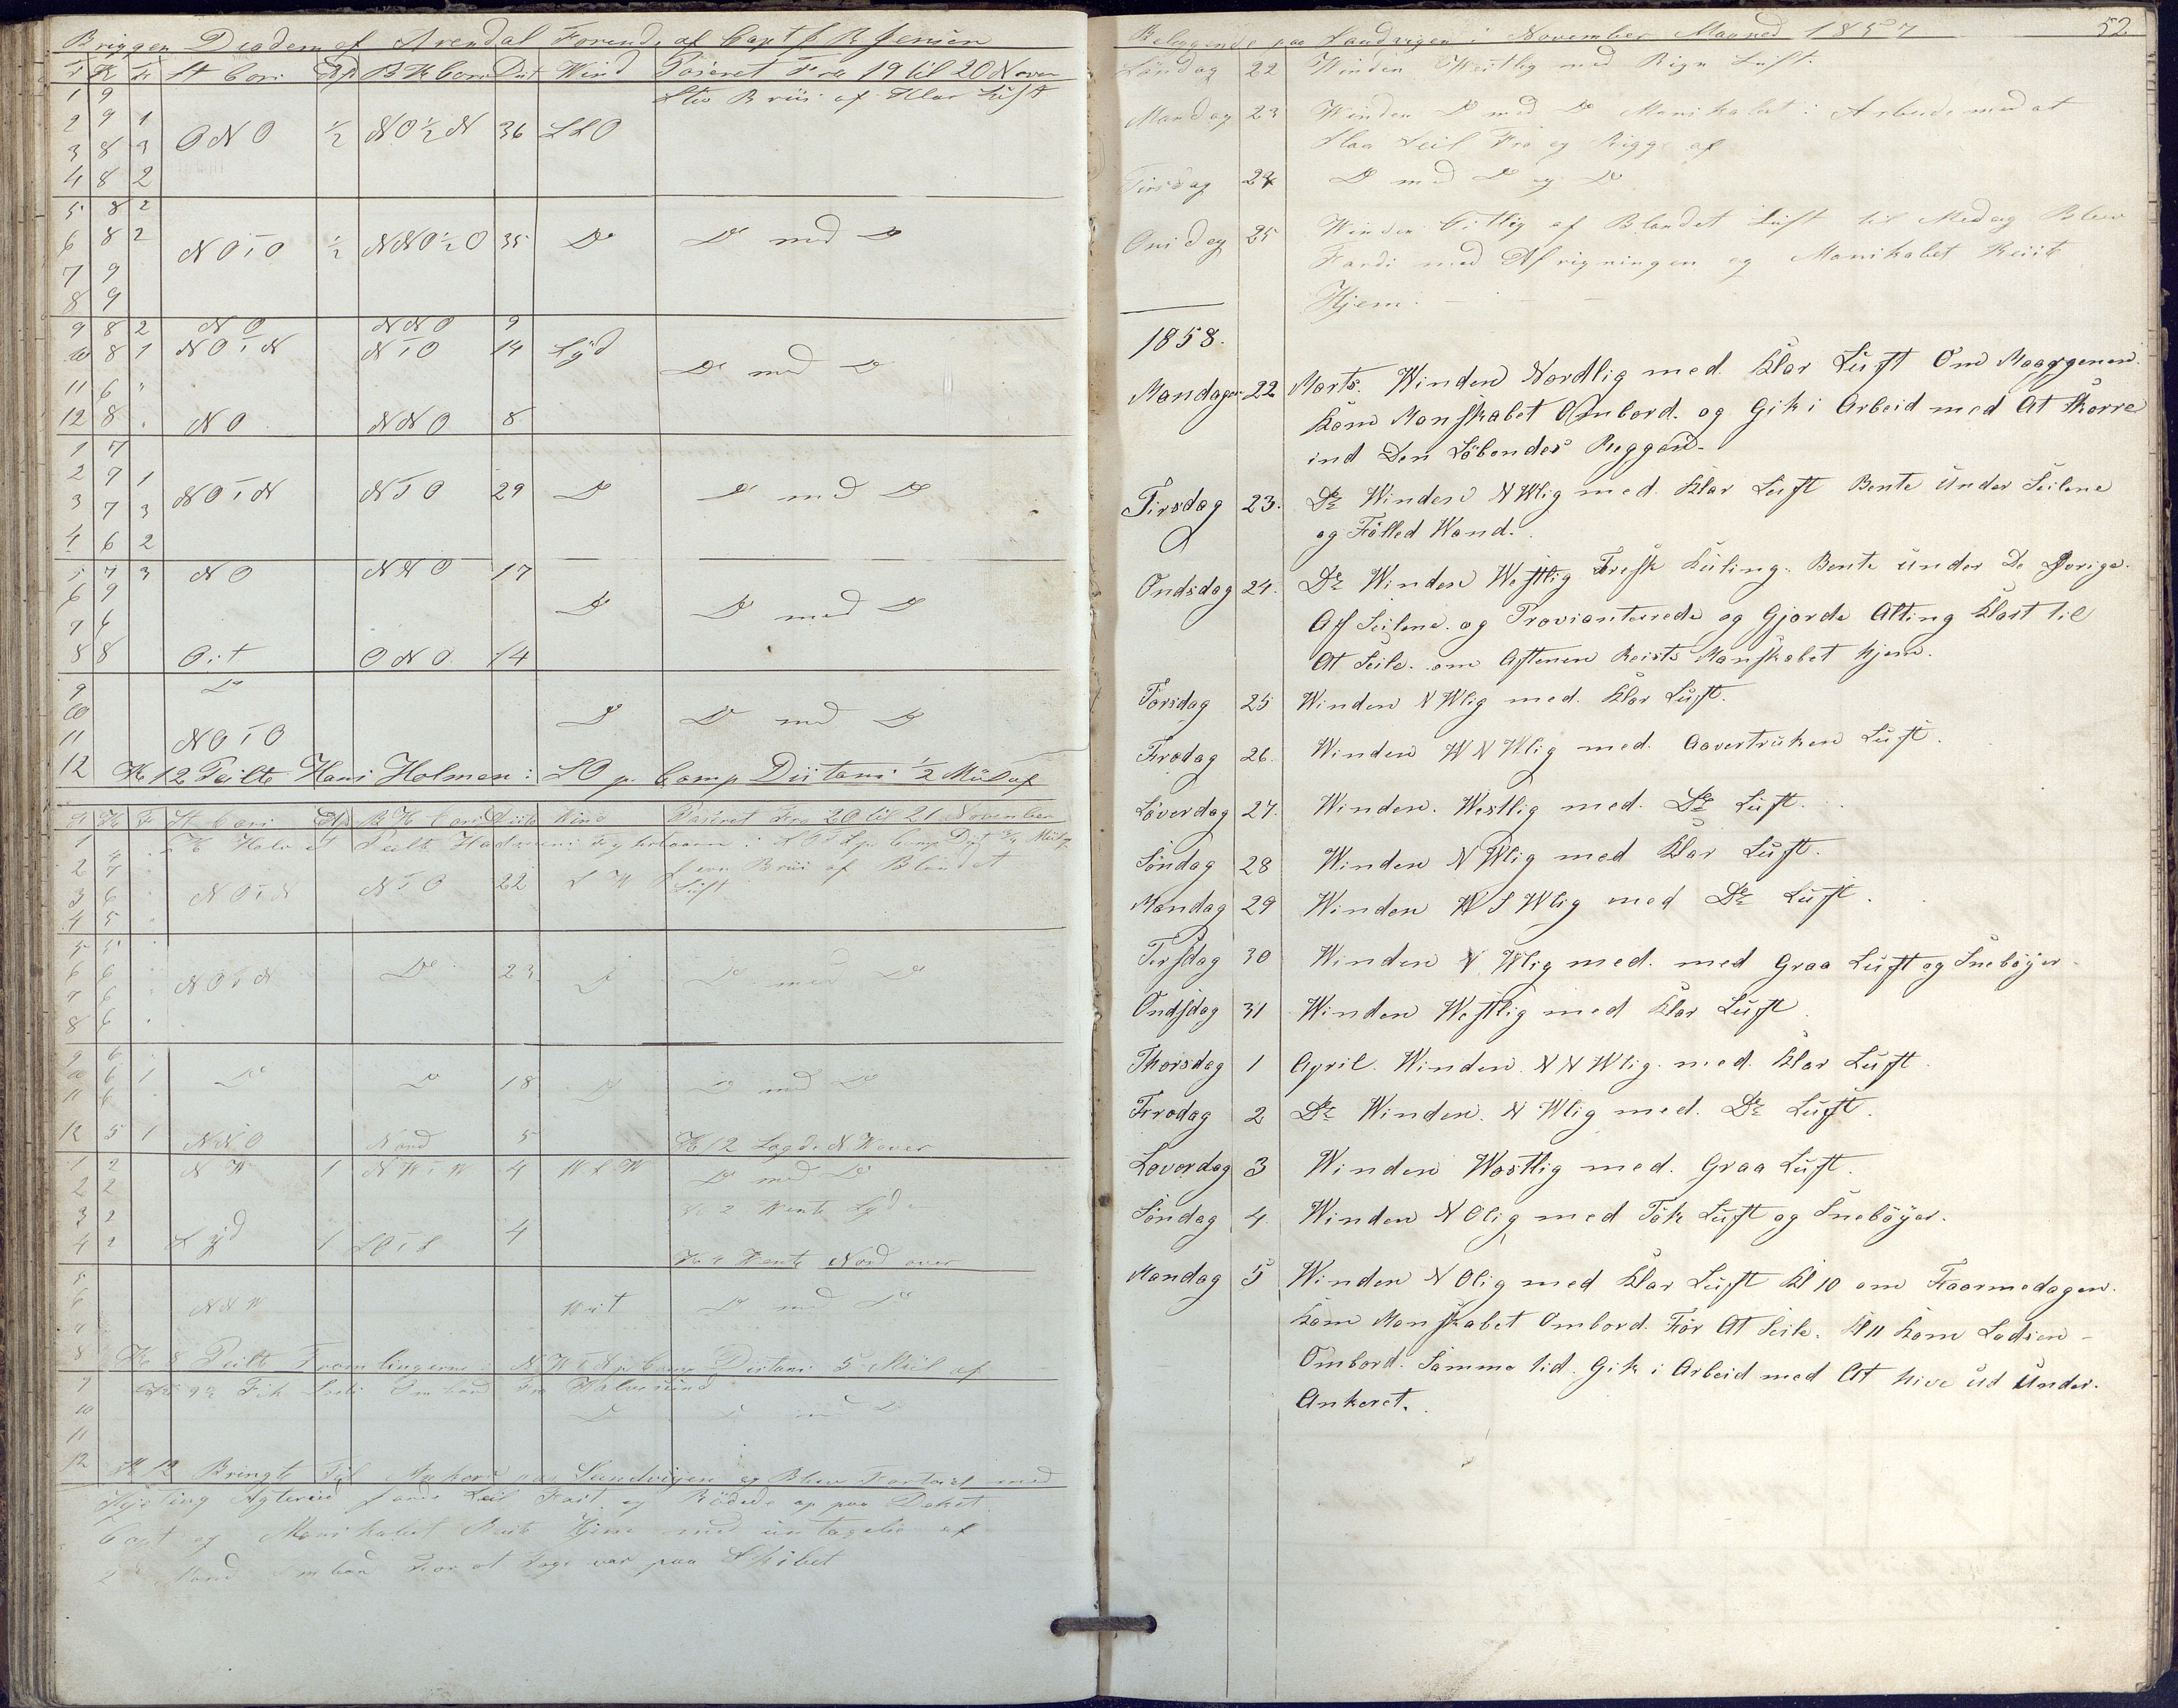 Briggen Diadem af Arendal Førende af Capt J R Jensen
T K F St Cours Ap BK Cours Dist Wind Passeret Fra 19 til 20 Novem
1 9 Stiv Briis af Klar Luft
2 9 1
3 8 3 ONO ½ NO½N 36 SSO
4 8 2
5 8 2
6 8 2 NOtO ½ NNO½O 35 Do Do med Do
7 9
8 9
9 8 2 NO NNO 9
10 8 1 NOtN NtO 14 Syd Do med Do
11 6 "
12 8 . NO NNO 8
1 7
2 9 1
3 7 3 NOtN NTO 29 Do Do med Do
4 6 2
5 7 3 NO NNO 17
6 9 Do Do med Do
7 6
8 8 Ost ONO 14
9 Do
10 Do Do med Do
11 NOtO
12 Kl 12 Peilte Hans Holmen i SO p. Comp Distans ½ Miil af
T K F St Cours Ap BK Cours Dist Wind Passeret Fra 20 til 21 November
1 4
2 7 Briis af Blandet
3 6 NOtN NTO 22 SW Luft
4 5
5 5
6 6 NOtN Do 23 Do Do med Do
7 6
8 6
9 6
10 6 1 Do Do 18 Do Do med Do
11 6
12 5 1 NNO Nord 5 Kl 12 Lagde N Wover
1 2 NW 1 NWtW 4 WSW Do med Do
2 2
3 2 Kl 2 Wente Syd
4 2 Syd 1 SOtS 4
Kl 4 Wente Nord over
5
6 NNW West Do med Do
7
8 Kl 8 Peilte Fromlingerne i NWtN p Comp Distans 5 Miil af
9 Fik Lods Ombord Fra
10 Do Do med Do
11
12 Kl 12 Bringte Til Ankers paa Sandvigen og Blev Fortøiet med
Agterud Seil Fast og Rödede op paa Deket
Capt og Manskabet Reiste Hjem med undtagelse af
2 Mand Ombord For at Tage var paa Skibet
52.
Beliggende paa Sandvigen i November Maaned 1857
Söndag 22 Winden Westlig med Rign Luft.
Mandag 23 Winden Do med Do Manskabet i Arbeide med at
Slaa Seil Fra og Rigge af
Tirsdag 24 Do med Do og Do
Onsdag 25 Winden Östlig af Blandet Luft til Medag Blev
Færdi med Afrigningen og Manskabet Reiste
Hjem.
1858.
Mandagen 22 Marts. Winden Nordlig med Klar Luft Om Maargenen
Kom Manskabet Ombord. og Gik i Arbeid med At Skorre
ind Den Löbendes Reggen.
Tirsdag 23. Do Winden NWlig med Klar Luft Bente Under Seilene
og Fölled Wand.
Ondsdag 24. Do Winden Westlig Fresk Kuling. Bente under De Övrige
Af Seilene. og Provianterede og Gjorde Alting Klart til
At Seile. om Aftenen Reiste Manskabet hjem.
Torsdag 25 Winden NWlig med. Klar Luft.
Fredag 26. Winden WNWlig med. Aavertruken Luft.
Löverdag 27. Winden. Westlig med. Do Luft.
Söndag 28 Winden NWlig med Klar Luft.
Mandag 29 Winden WSWlig med Do Luft.
Tirsdag 30 Winden NWlig med. med Graa Luft og Sneböyer
Ondsdag 31 Winden Westlig med Klar Luft
Thorsdag 1 April. Winden. NNWlig. med. Klar Luft
Fredag 2 Do Winden. NWlig med. Do Luft.
Löverdag 3 Winden Westlig med. Graa Luft.
Söndag 4. Winden NOlig med Tök Luft og Sneböyer.
Mandag 5 Winden NOlig med Klar Luft Kl 10 om Faarmedagen.
kom Manskabet Ombord. För At Seile. Kl 11 kom Lodsen
Ombord. Samme tid. Gik i Arbeid med At hive ud Under.
Ankeret.